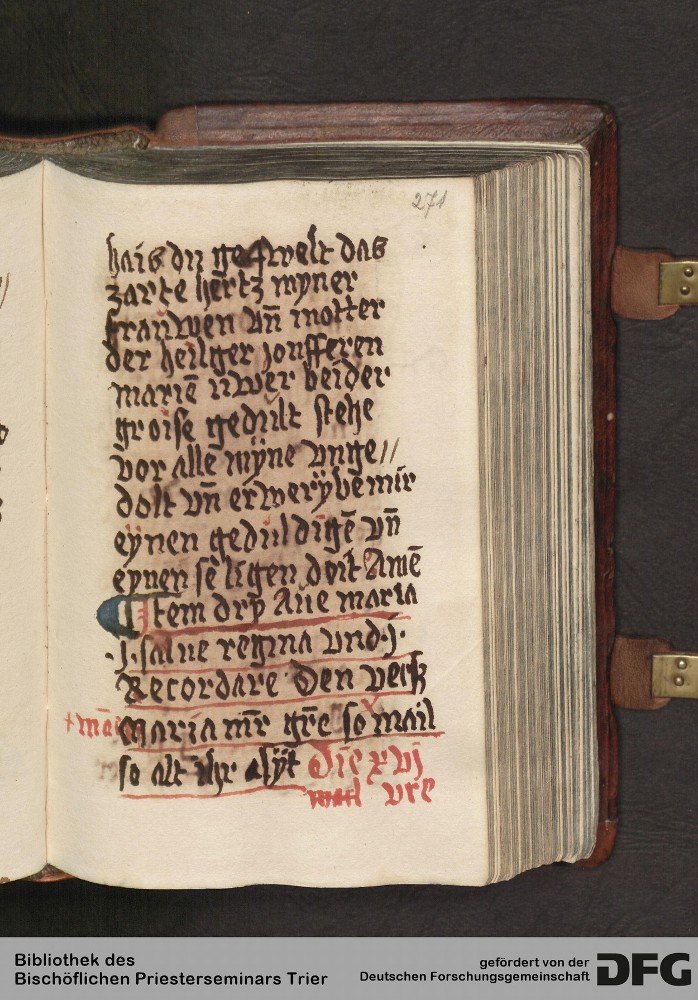 271
hais du geqwelt das
zarte hertz myner
frauwen vn̄ motter
der heilger jonfferen
mariē uwer beider
groise gedult stehe
vor alle myne vnge//
dolt vn̄ erwerÿbē mir
eynen geduldigē vn̄
eynen seligen doit Amē
Item dry Aue maria
·j· salue regina vnd ·j·
Recordare Den versz
Maria mr̄ grē so mail
so alt ihr sÿt Die xvj
mail vre
Bibliothek des
Bischöflichen Priesterseminars Trier
gefördert von der
Deutschen Forschungsgemeinschaft
DFG